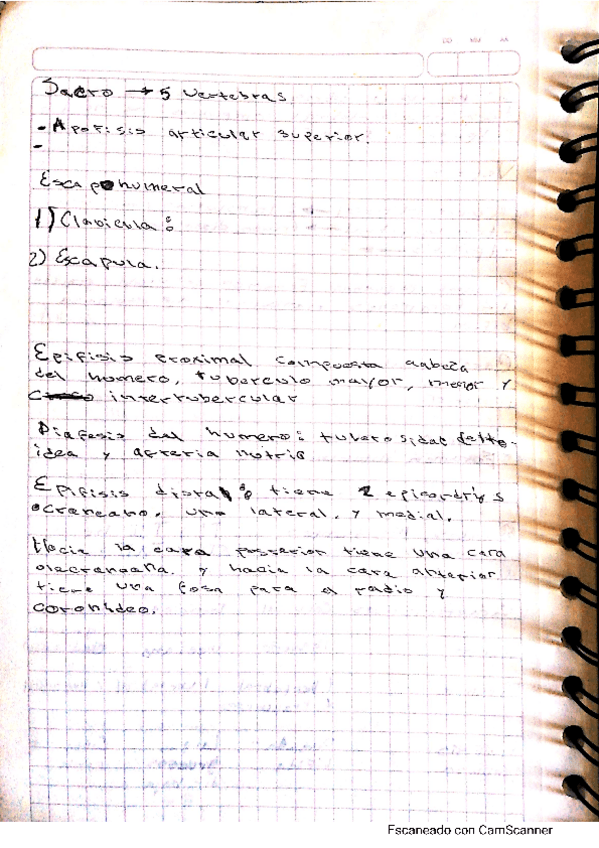 DD MM AA
Sacro → 5 vertebras
- Apofisis articular superior.
-
Escapohumeral
1) Clavicula:
2) Escapula.
Epifisis proximal compuesta cabeza
del humero, tuberculo mayor, menor y
intertubercular
Diafisis del humero: tuberosidad delto-
idea y arteria nutric
Epifisis distal: tiene 2 epicondrijs
ocraneano, uno lateral, y medial.
Hacia la cara posterior tiene una cara
olecraneana. y hacia la cara anterior
tiere una fosa para el radio y
coronideo.
Escaneado con CamScanner